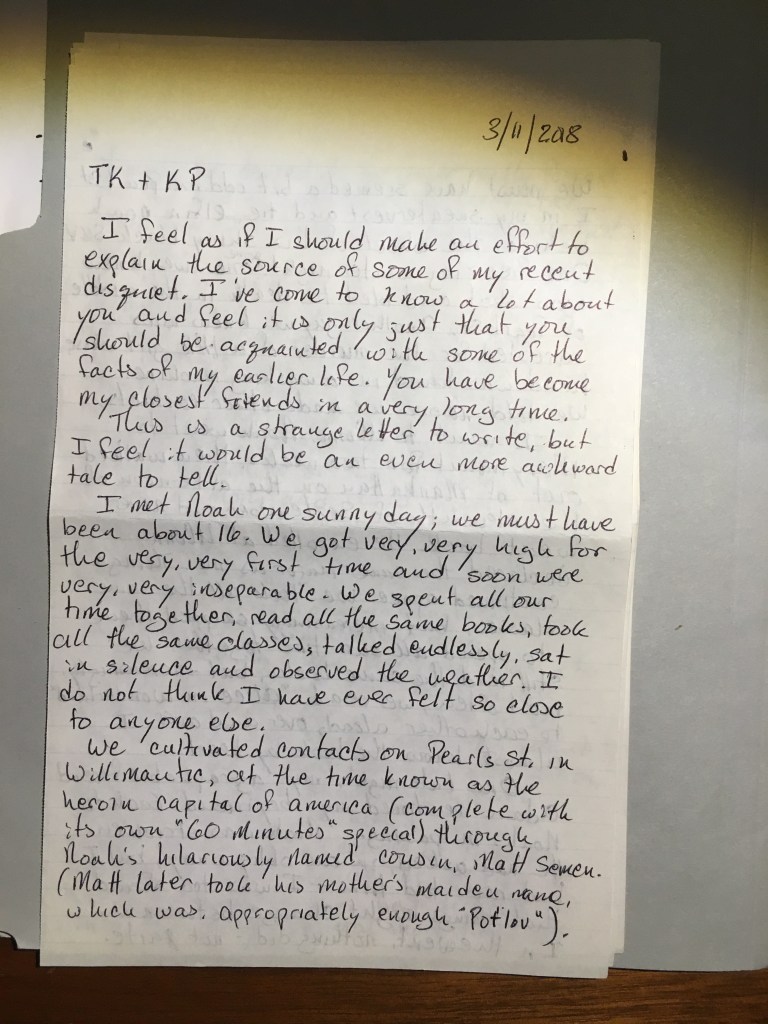 3/11/2018
TK + KP
I feel as if I should make an effort to
explain the source of some of my recent
disquiet. I've come to know a lot about
you and feel it is only just that you
should be acquainted with some of the
facts of my earlier life. You have become
my closest friends in a very long time.
This is a strange letter to write, but
I feel it would be an even more awkward
tale to tell.
I met Noah one sunny day; we must have
been about 16. We got very, very high for
the very, very first time and soon were
very, very inseparable. We spent all our
time together, read all the same books, took
all the same classes, talked endlessly, sat
in silence and observed the weather. I
do not think I have ever felt so close
to anyone else.
We cultivated contacts on Pearls St. in
Willimantic, at the time known as the
heroin capital of america (complete with
its own "60 Minutes" special) through
Noah's hilariously named cousin, Matt Semen.
(Matt later took his mother's maiden name,
which was, appropriately enough, "Potlov").